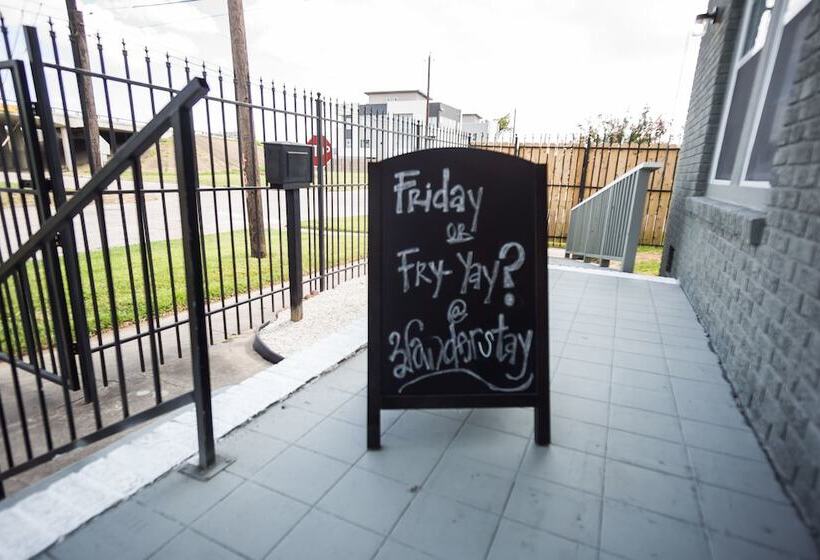 Friday
or
Fry-Yay?
@
Wanderstay